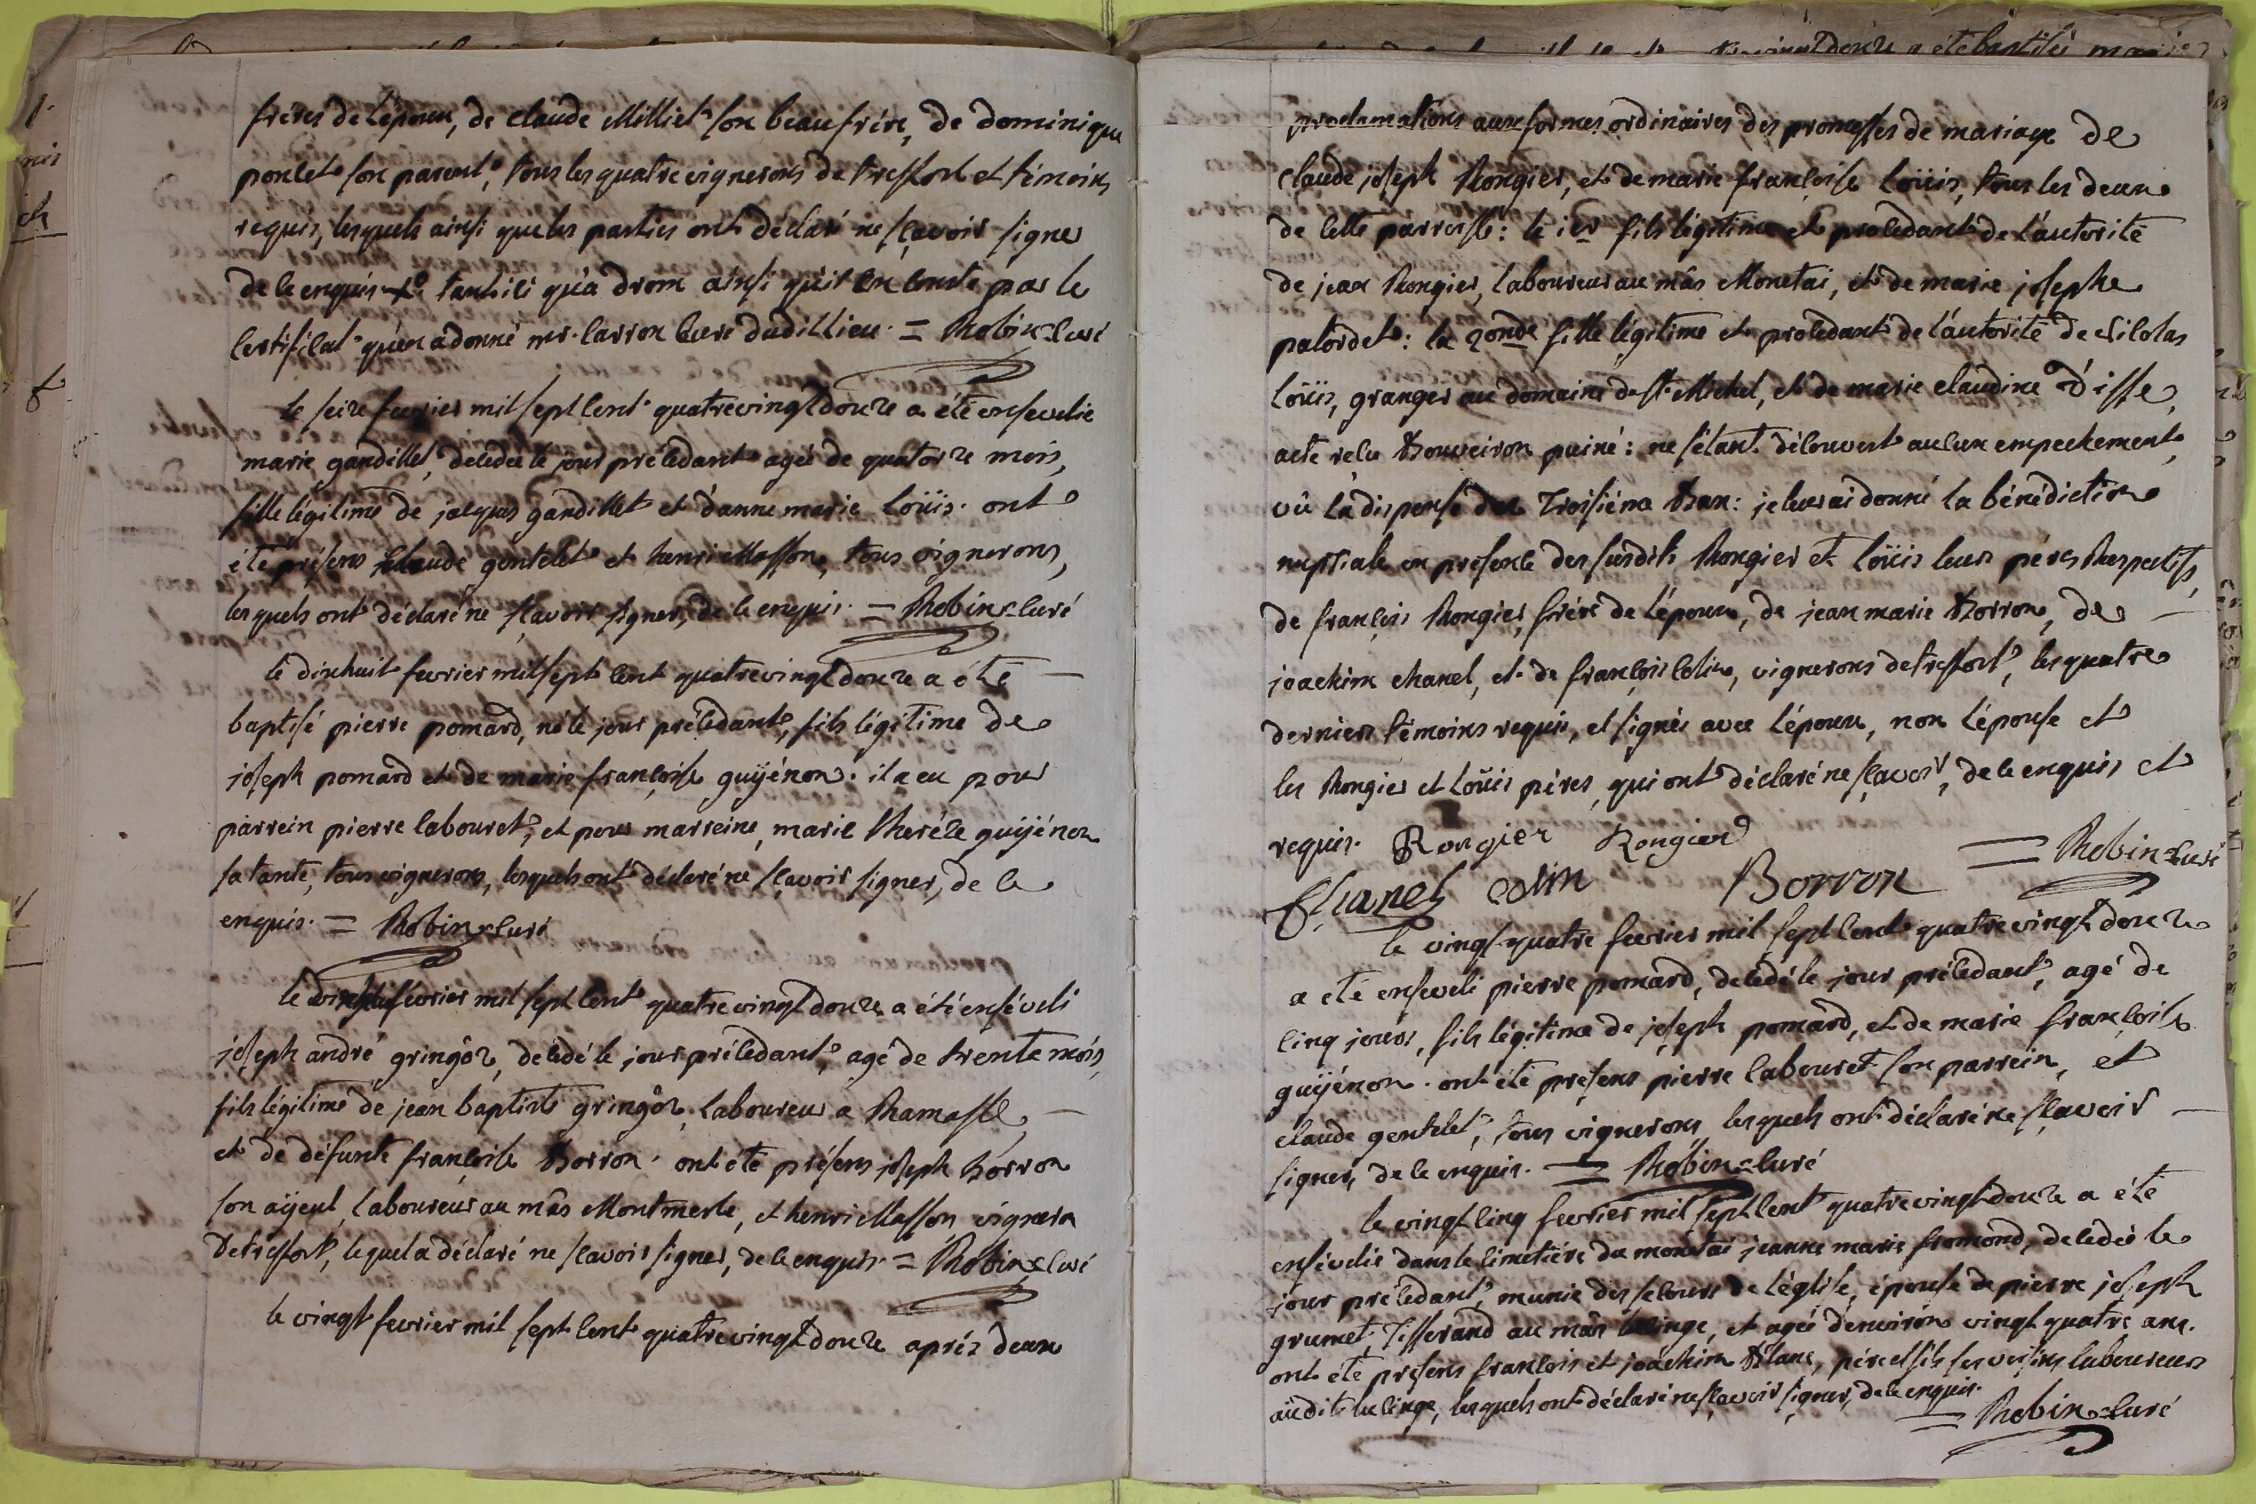 frères de l'époux, de claude Milliet son beaufrère, de dominique
poncet son parent, tous les quatre vignerons de treffort et témoins
requis, lesquels ainsi que les parties ont déclaré ne sçavoir signer
de ce enquis tant ici qu'à drom ainsi qu'il en conste par le
certificat qu'en a donné mr. carron curé dudit lieu. = Robin curé
le seize fevrier mil sept cent quatrevingt douze a été ensevelie
marie gandillet, decedée le jour précédant agée de quatorze mois,
fille légitime de jacques gandillet et d'anne marie Loüis. ont
été présens claude gentelet et henri Masson, tous vignerons,
lesquels ont déclaré ne sçavoir signer, de ce enquis. = Robin curé
le dixhuit fevrier mil sept cent quatrevingt douze a été
baptisé pierre pomard, né le jour précédant, fils légitime de
joseph pomard et de marie françoise guyénon. il a eu pour
parrein pierre labouret, et pour marreine, marie therèse guyénon
sa tante, tous vignerons, lesquels ont déclaré ne sçavoir signer, de ce
enquis. = Robin curé
le fevrier mil sept cent quatrevingt douze a été enséveli
joseph andré gringoz, decedé le jour précédant, agé de trente mois,
fils légitime de jean baptiste gringoz, laboureur a Ramasse,
et de défunte françoise Borron. ont été présens joseph borron
son ayeul, laboureur au mâs Montmerle, et henri Masson vigneron
de treffort, lequel a déclaré ne sçavoir signer, de ce enquis. = Robin curé
le vingt fevrier mil sept cent quatrevingt douze après deux
proclamations aux formes ordinaires des promesses de mariage de
claude joseph Rongier, et de marie françoise Loüis, tous les deux
de cette parroisse: le 1er fils légitime et procedant de l'autorité
de jean Rongier, laboureur au mâs Monetai, et de marie josephe
palordet: la 2onde fille légitime et procedant de l'autorité de Nicolas
Loüis, granger au domaine de St Michel, et de marie claudine disse,
acte reçu Bouveiron puiné: ne s'étant découvert aucun empechement,
vû la dispense du Troisiéme Ban: je leur ai donné la bénédiction
nuptiale en présence des susdits Rongier et Loüis leurs péres Respectifs,
de françois Rongier, frère de l'époux, de jean marie Borron, de
joachim chanel, et de françois colin, vignerons de treffort, les quatre
derniers témoins requis, et signés avec l'époux, non l'épouse et
les Rongier et Loüis péres, qui ont déclaré ne sçavoir, de ce enquis et
requis. Rongier Rongier = Robin curé
Chanel colin Borron
le vingt quatre fevrier mil sept cent quatrevingt douze
a été enseveli pierre pomard, decedé le jour précédant, agé de
cinq jours, fils légitime de joseph pomard, et de marie françoise
guyénon. ont été présens pierre labouret son parrein, et
claude gentelet, tous vignerons, lesquels ont déclaré ne sçavoir
signer, de ce enquis. = Robin curé
le vingt cinq fevrier mil sept cent quatrevingt douze a été
enséveli dans le cimetière du monetai jeanne marie fromond, decedée le
jour précédant, munie des secours de l'église, épouse de pierre joseph
grumet, Tisserand au mâs lucinge, et agée d'environ vingt quatre ans.
ont été présens françois et joachim Blanc, père et fils ses voisins laboureurs
audit lucinge, lesquels ont déclaré ne sçavoir signer, de ce enquis.
= Robin curé